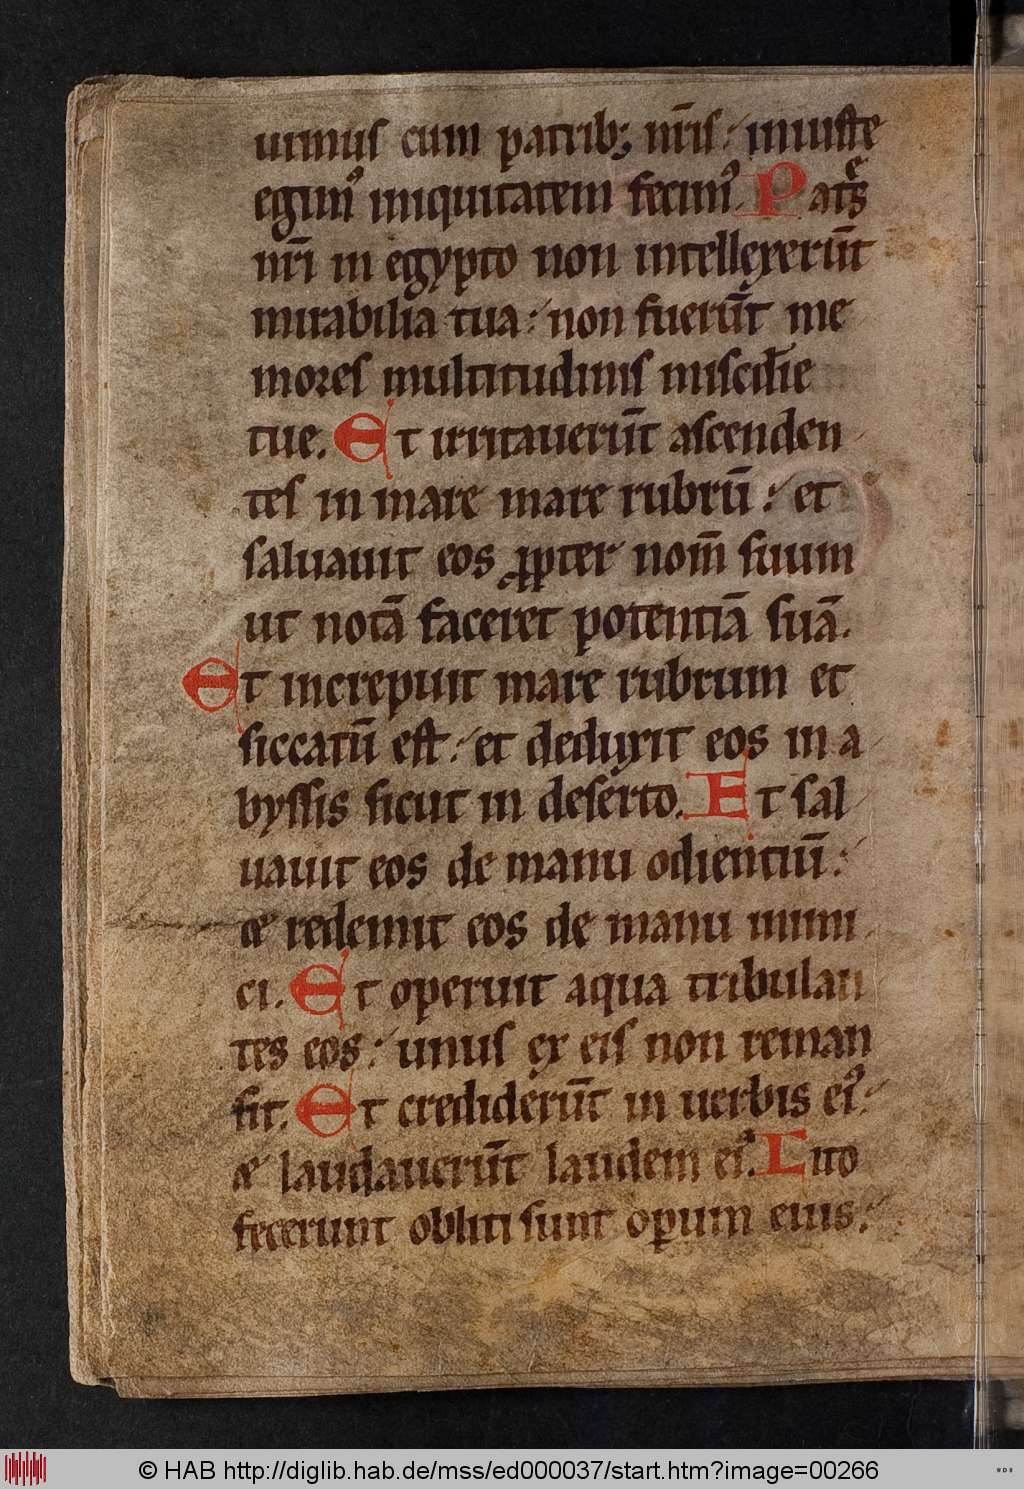 uimus cum patrib; nr̄is: iniuste
egim᷒ iniquitatem fecim᷒. Patꝭͤ
nr̄i in egypto non intellexerūt
mirabilia tua: non fuerūt me
mores multitudinis miscd̄ie
tue. Et irritauerūt ascenden
tes in mare mare rubrū: et
saluauit eos ꝓpter nom̄ suum
ut notā faceret potentiā suā.
Et increpuit mare rubrum et
siccatū est: et deduxit eos in a
byssis sicut in deserto. Et sal
uauit eos de manu odientiū:
⁊ redemit eos de manu inimi
ci. Et operuit aqua tribulan
tes eos: unus ex eis non reman
sit. Et crediderūt in uerbis ei᷒:
⁊ laudauerūt laudem ei᷒. Cito
fecerunt obliti sunt operum eius:
© HAB http://diglib.hab.de/mss/ed000037/start.htm?image=00266